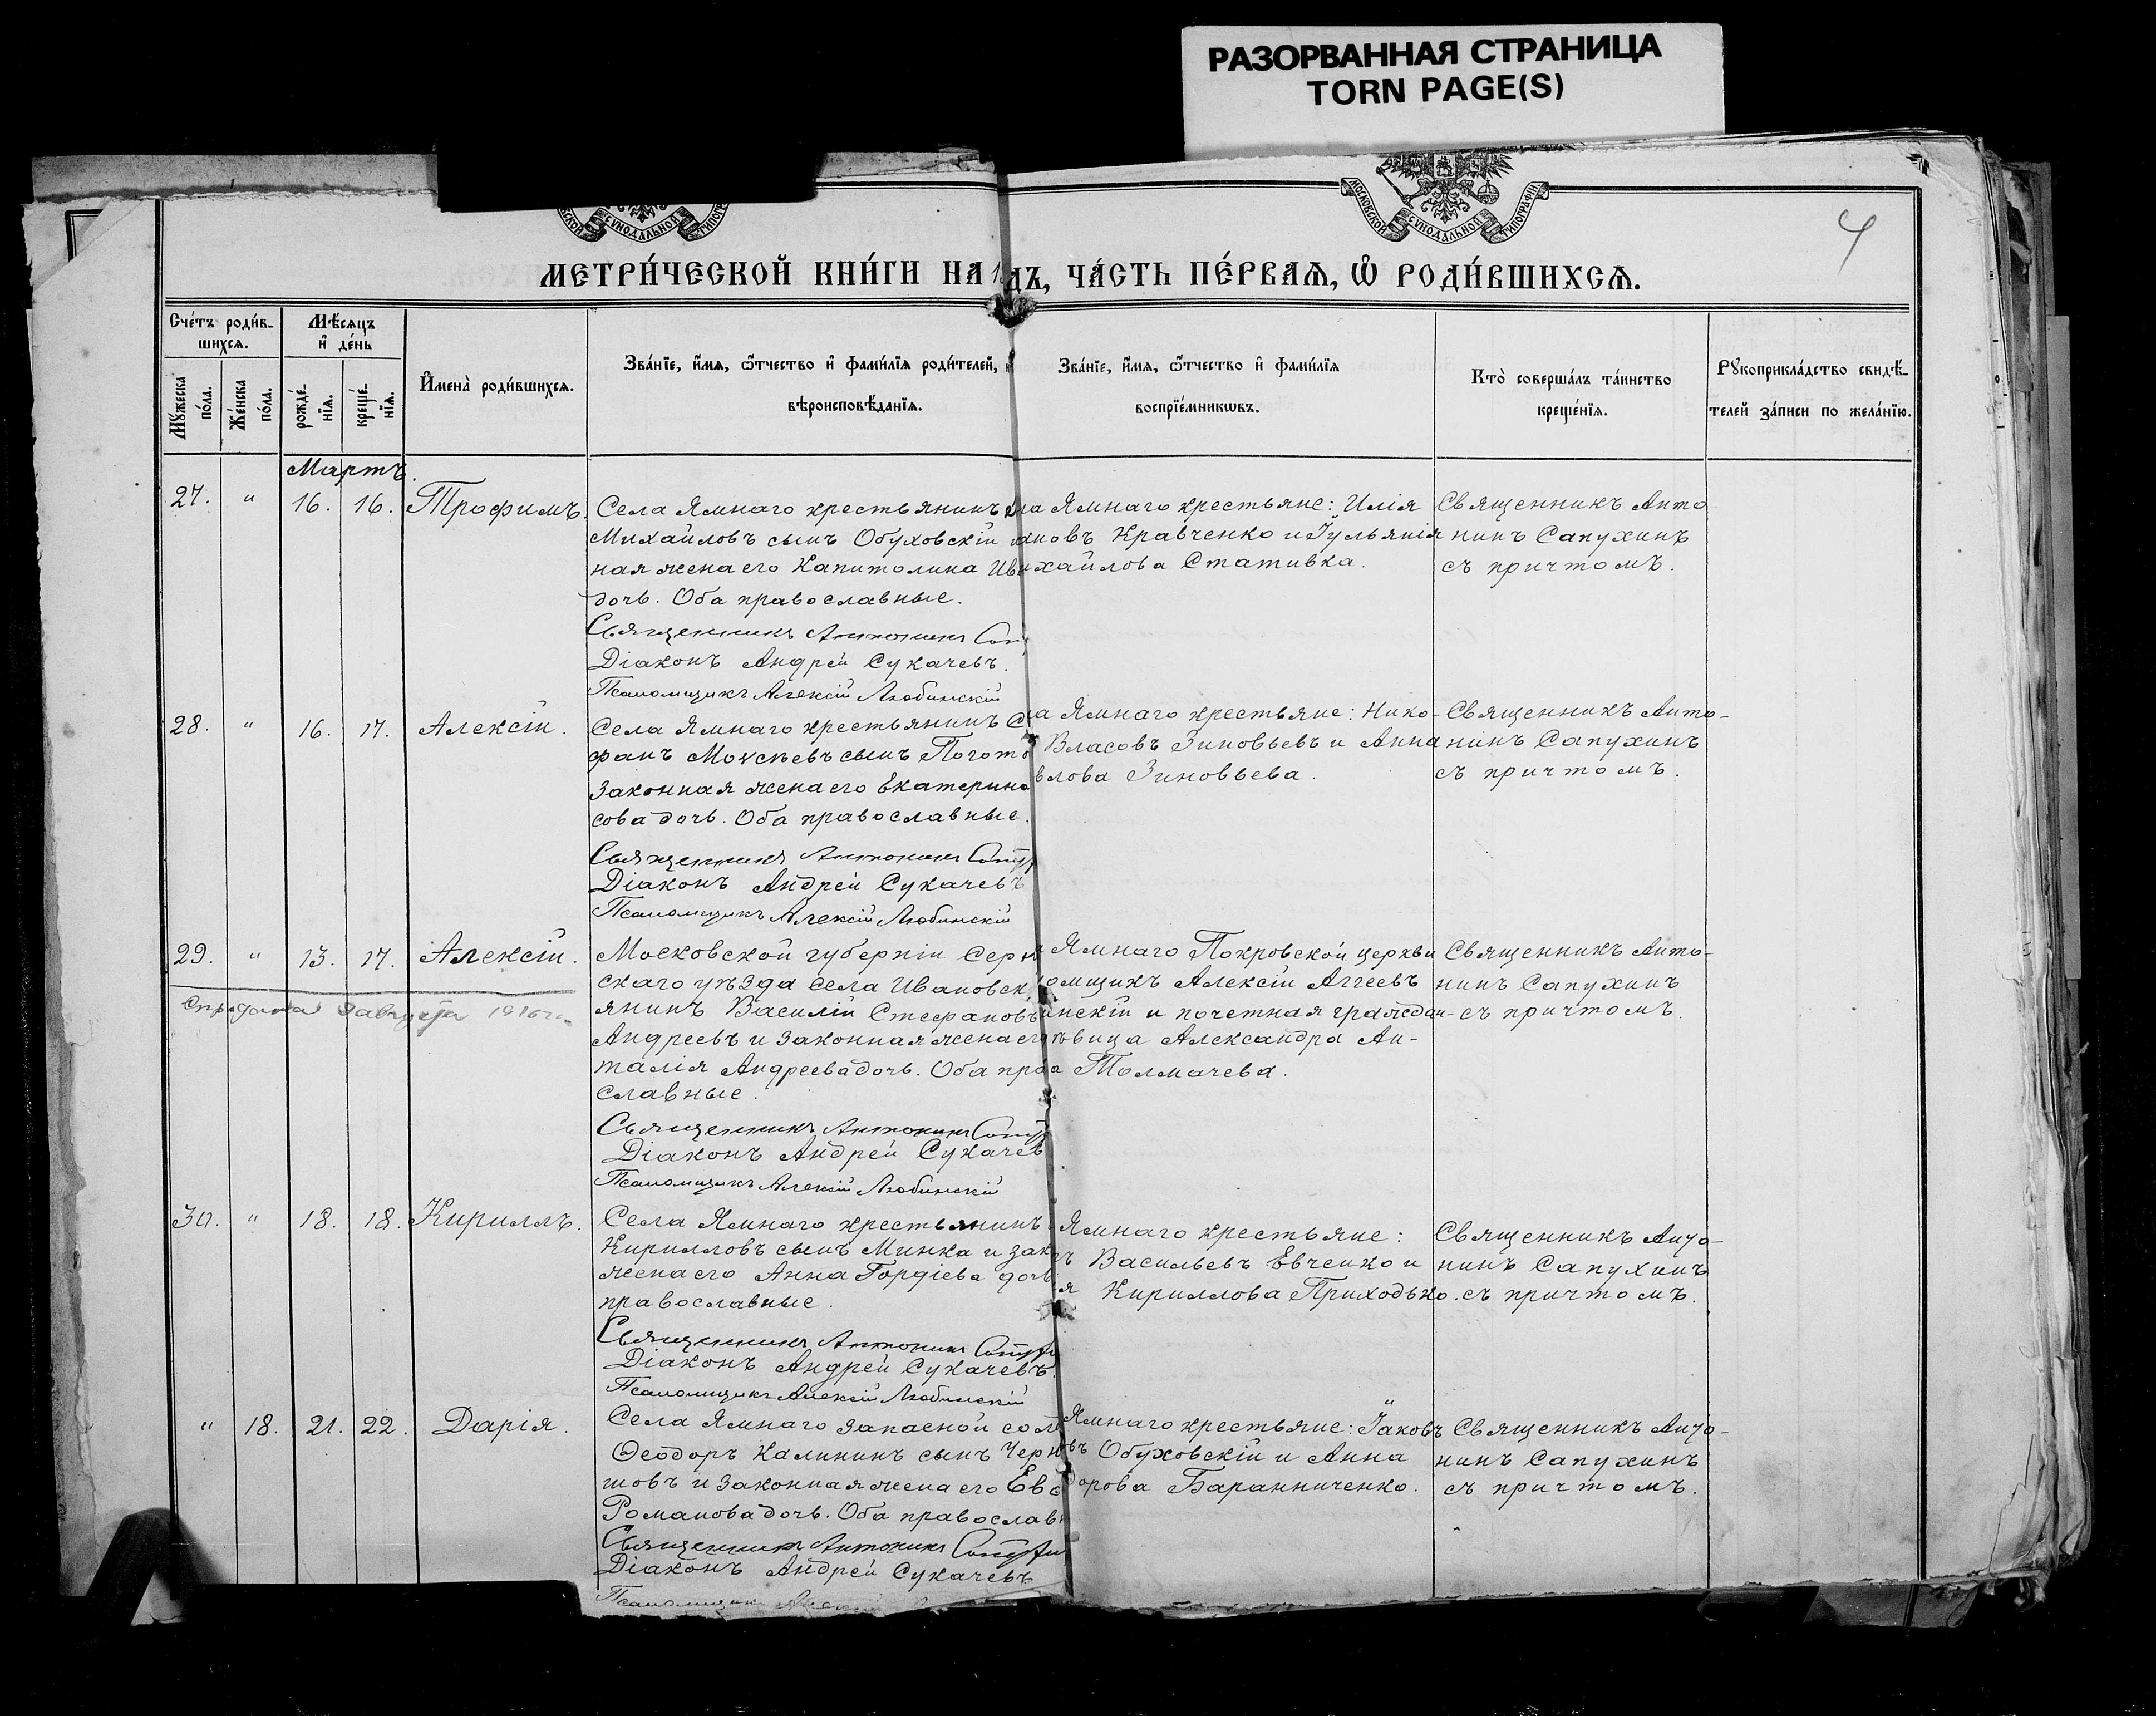 РАЗОРВАННАЯ СТРАНИЦА
TORN PAGE(S)
МОСКОВСКОЙ СѴНОДАЛЬНОЙ ТИПОГРАФІИ
4
МЕТРИ́ЧЕСКОЙ КНИ́ГИ НА 1
дъ, ЧА́СТЬ ПЕ́РВАЯ, Ѡ҆ РОДИ́ВШИХСЯ.
Сче́тъ роди́в-
шихся.
Мѣ́сяцъ
и҆ де́нь
Мꙋ́жеска
по́ла.
Же́нска
по́ла.
рожде́-
нїя.
креще́-
нїя.
И҆мена̀ роди́вшихся.
Зва́нїе, и҆́мя, ѻ҆́тчество и҆ фами́лїя роди́телей, и҆
вѣроисповѣ́данїя.
Зва́нїе, и҆́мя, ѻ҆́тчество и҆ фами́лїя
воспрїе́мникωвъ.
Кто̀ соверша́лъ та́инство
креще́нїя.
Рꙋкоприкла́дство свидѣ́-
телей за́писи по жела́нїю.
Мартъ.
27. " 16. 16. Трофимъ.
Села Ямнаго крестьянинъ
Михайловъ сынъ Обуховскій
ная жена его Капитолина Ив
дочь. Оба православные.
Священникъ Антонинъ Сап
Діаконъ Андрей Сукачевъ.
Псаломщикъ Алексій Любинскій
ла Ямнаго крестьяне: Илія
новъ Кравченко и Іульянія
хайлова Стативка.
Священникъ Анто
нинъ Сапухинъ
съ причтомъ.
28. " 16. 17. Алексій.
Села Ямнаго крестьянинъ С
фанъ Моѵсѣевъ сынъ Погото
законная жена его Екатерина
сова дочь. Оба православные.
Священникъ Антонинъ Сапу
Діаконъ Андрей Сукачевъ
Псаломщикъ Алексій Любинскій
ла Ямнаго крестьяне: Нико-
Власовъ Зиновьевъ и Анна
влова Зиновьева.
Священникъ Анто-
нинъ Сапухинъ
съ причтомъ.
29. " 13. 17. Алексій.
августа
Московской губерніи Серп
скаго уѣзда села Ивановск
янинъ Василій Стефановъ
Андреевъ и законная жена его
талія Андреева дочь. Оба пра
славные.
Священникъ Антонинъ Сапу
Діаконъ Андрей Сукачев
Псаломщикъ Алексій Любинскій
Ямнаго Покровской церкви
омщикъ Алексій Аггеевъ
инскій и почетная граждан-
ѣвица Александра Ан-
а Толмачева.
Священникъ Анто-
нинъ Сапухинъ
съ причтомъ.
30. " 18. 18. Кириллъ.
Села Ямнаго крестьянинъ
Кирилловъ сынъ Минка и зак
жена его Анна Гордіева дочь
православные.
Священникъ Антонинъ Сапух
Діаконъ Андрей Сукачевъ.
Псаломщикъ Алексій Любинскій
Ямнаго крестьяне:
ъ Васильевъ Евченко и
я Кириллова Приходько.
Священникъ Анто-
нинъ Сапухинъ
съ причтомъ.
" 18. 21. 22. Дарія.
Села Ямнаго запасной сол
Ѳеодоръ Калининъ сынъ Черн
шовъ и законная жена его Евд
Романова дочь. Оба православн
Священникъ Антонинъ Сапухи
Діаконъ Андрей Сукачевъ
Псаломщикъ Алексій
Ямнаго крестьяне: Іаковъ
въ Обуховскій и Анна
дорова Баранниченко.
Священникъ Анто-
нинъ Сапухинъ
съ причтомъ.